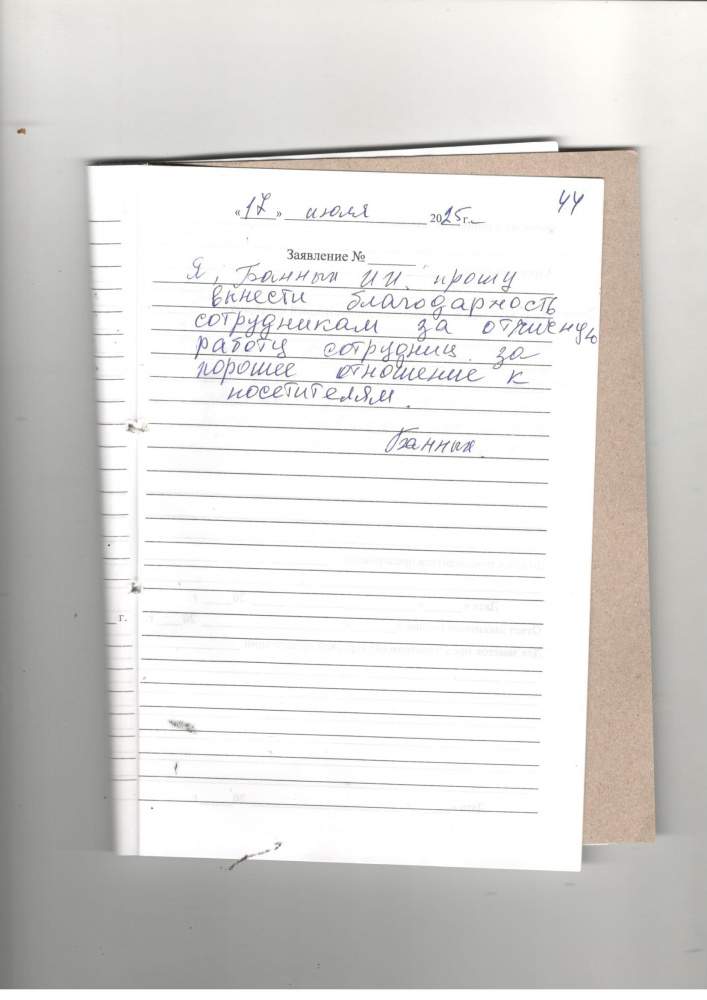 44
«17» июля 2025г.
Заявление №
Я, Банных И.И. прошу
вынести благодарность
сотрудникам за отличную
работу сотрудниц за
хорошее отношение к
посетителям.
Банных.
г.